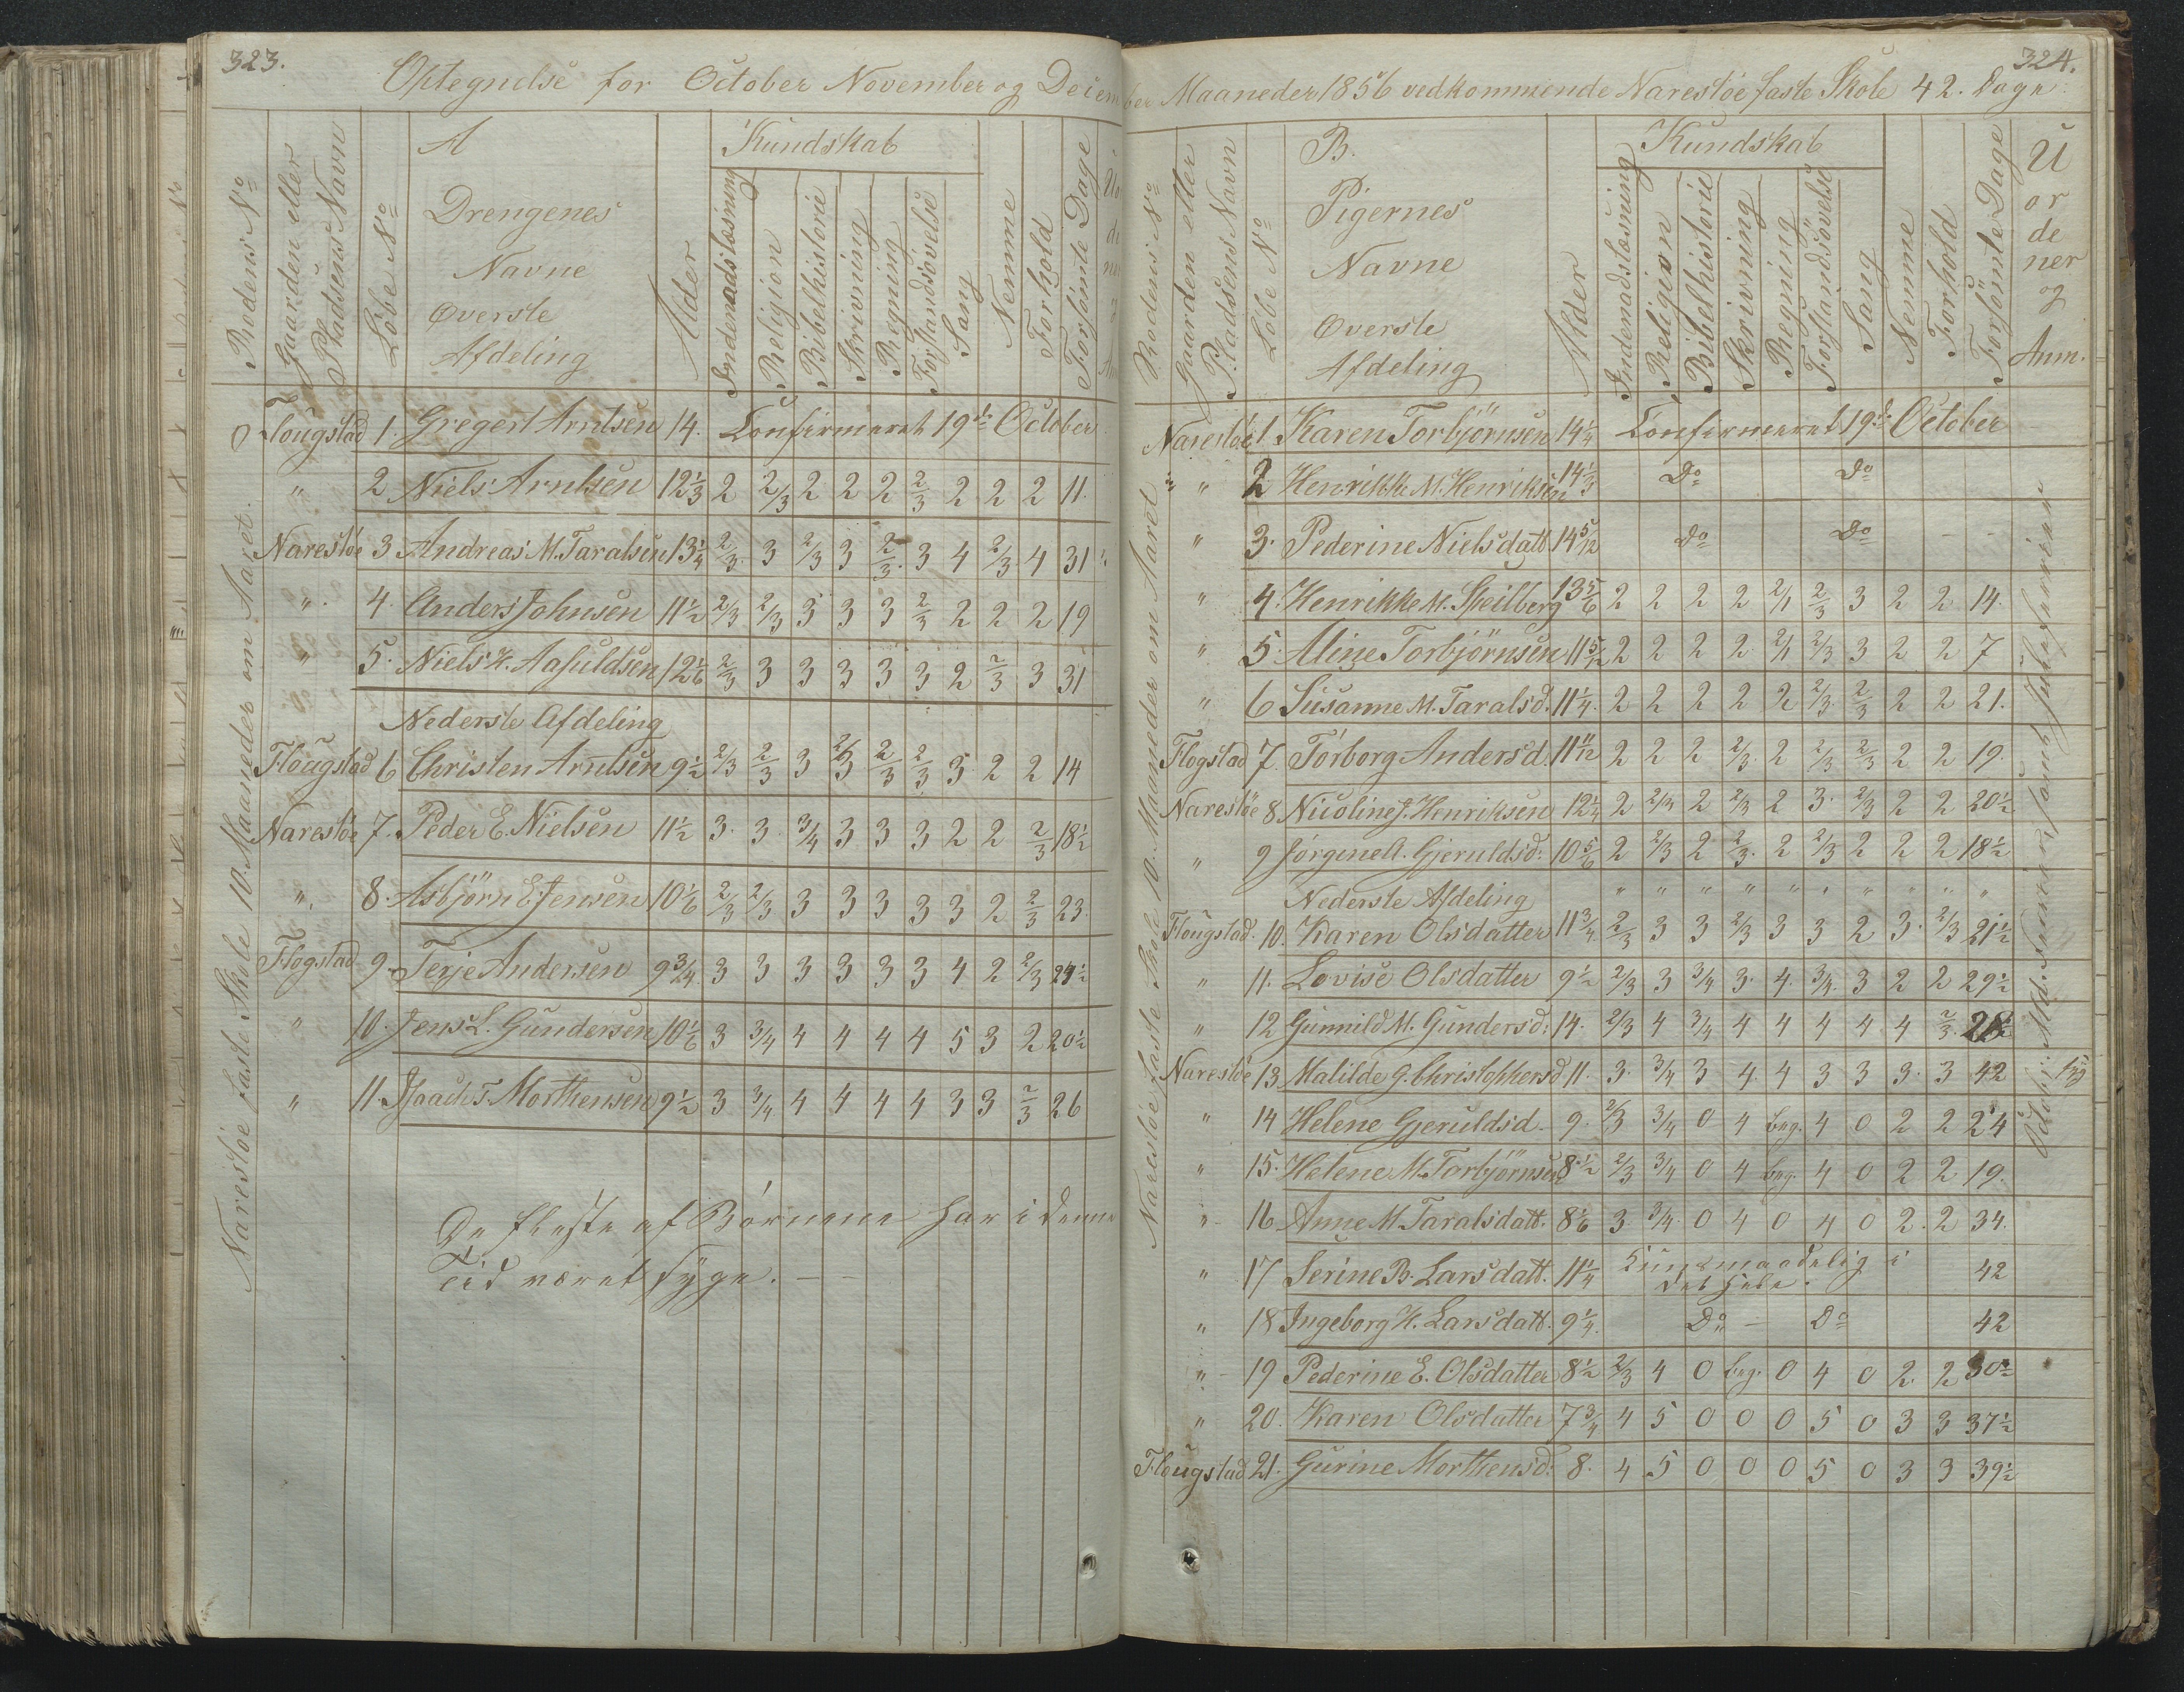 323.
Optegnelse for October November og Decem
Rodens No
Gaarden eller Pladsens Navn
Löbe No
A
Drengenes
Navne
Överste
Afdeling
Alder
Kundskab
Indenadslæsning
Religion
Bibelhistorie
Skrivning
Regning
Forstandsövelse
Sang
Nemme
Forhold
Forsömte Dage
Narestöe faste Skole 10. Maaneder om Aaret.
Flougstad 1. Gregert Arntsen 14. Confirmeret 19de October
" 2 Niels Arntsen 12 1/3 2 2/3 2 2 2 2/3 2 2 2 11.
Narestöe 3 Andreas M. Taralsen 13 1/4 2/3 3 2/3 3 2/3 3 4 2/3 4 31
" 4. Anders Johnsen 11 1/2 2/3 2/3 3 3 3 2/3 2 2 2 19
" 5. Niels H. Aasuldsen 12 1/6 2/3 3 3 3 3 3 2 2/3 3 31
Nederste Afdeling
Flougstad 6 Christen Arntsen 9 1/2 2/3 2/3 3 2/3 2/3 2/3 3 2 2 14
Narestöe 7. Peder E. Nielsen 11 1/2 3. 3. 3/4 3 3 3 2 2 2/3 18 1/2
" 8. Asbjörn E. Jensen 10 1/6 2/3 2/3 3 3 3 3 3 2 2/3 23.
Flogstad 9. Terje Andersen 9 3/4 3 3 3 3 3 3 4 2 2/3 24 1/2
" 10. Jens L. Gundersen 10 1/6 3 3/4 4 4 4 4 5 3 2 20 1/2
" 11. Isaach T. Morthensen 9 1/2 3 3/4 4 4 4 4 3 3 2/3 26
De fleste af Börnene har i denne
Tid været syge. —
324.
ber Maaneder 1856 vedkommende Narestöe faste Skole 42. Dage
Rodens No
Gaarden eller Pladsens Navn
Löbe No
B.
Pigernes
Navne
Överste
Afdeling
Alder
Kundskab
Indenadslæsning
Religion
Bibelhistorie
Skrivning
Regning
Forstandsövelse
Sang
Nemme
Forhold
Forsömte Dage
U
or
de
ner
og
Anm.
Narestöe faste Skole 10. Maaneder om Aaret
Narestöe 1. Karen Torbjörnsen 14 1/4 Confirmeret 19de October
" 2 Henrikke M. Henriksen 14 1/3 Do Do
" 3. Pederine Nielsdatt 14 5/12 Do Do
" 4. Henrikke M. Skeilberg 13 5/6 2 2 2 2 2/1 2/3 3 2 2 14.
" 5. Aline Torbjörnsen 11 5/12 2 2 2 2 2/1 2/3 3 2 2 7
" 6 Susanne M. Taralsd. 11 1/4. 2 2 2 2 2 2/3 2/3 2 2 21.
Flogstad 7. Torborg Andersd. 11 11/12 2 2 2 2/3 2 2/3 2/3 2 2 19.
Narestöe 8 Nicoline J. Henriksen 12 1/4 2 2/3 2 2/3 2 3. 2/3 2 2 20 1/2
" 9 Jörgine A. Gjeruldsd: 10 5/6 2 2/3 2 2/3 2 2/3 2 2 2 18 1/2
Nederste Afdeling " " " " " " " " " "
Flougstad. 10. Karen Olsdatter 11 3/4 2/3 3 3 2/3 3 3 2 3. 2/3 21 1/2
" 11. Lovise Olsdatter 9 1/2 2/3 3 3/4 3. 4. 3/4. 3 2 2 29 1/2
" 12 Gunnild M. Gundersd: 14. 2/3 4 3/4 4 4 4 4 4 2/3.
Narestöe 13 Malilde G. Christophersd 11. 3. 3/4 3 4. 4 3 3 3. 3 42
" 14 Helene Gjeruldsd. 9. 2/3 3/4 0 4 beg. 4 0 2 2 24
" 15. Helene M. Torbjörnsen 8 1/2 2/3 3/4 0 4 beg. 4 0 2 2 19.
" 16 Anne M. Taralsdatt. 8 1/6 3 3/4 0 4 0 4 0 2. 2 34.
" 17 Serine B. Larsdatt. 11 1/4 Kun maadelig i det hele. 42
" 18 Ingeborg H. Larsdatt. 9 1/4. Do — Do 42
" 19 Pederine E. Olsdatter 8 1/2 2/3 4 0 beg. 0 4 0 2 2 30 1/2
" 20. Karen Olsdatter 7 3/4 4 5 0 0 0 5 0 3 3 37 1/2
Flougstad 21. Gurine Morthensd: 8. 4 5 0 0 0 5 0 3 3 39 1/2